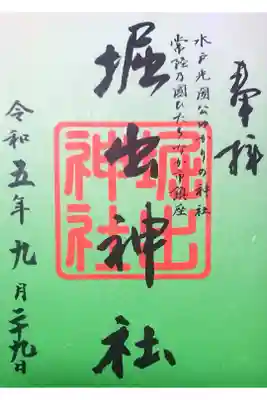 奉拝
水戸光圀公ゆかりの神社
常陸乃國ひたちなか市鎮座
堀出神社
堀出
神社
令和五年九月二十九日